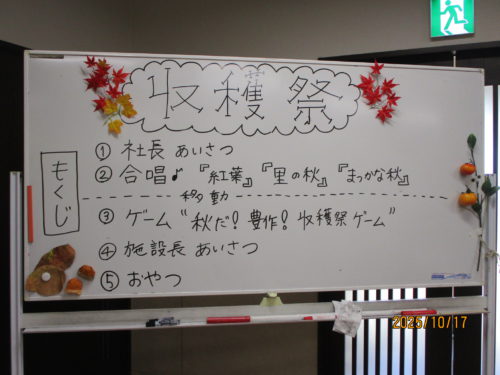 収穫祭
もくじ
① 社長 あいさつ
② 合唱♪ 『紅葉』『里の秋』『まっかな秋』
移動
③ ゲーム "秋だ！豊作！収穫祭ゲーム"
④ 施設長 あいさつ
⑤ おやつ
2025/10/17